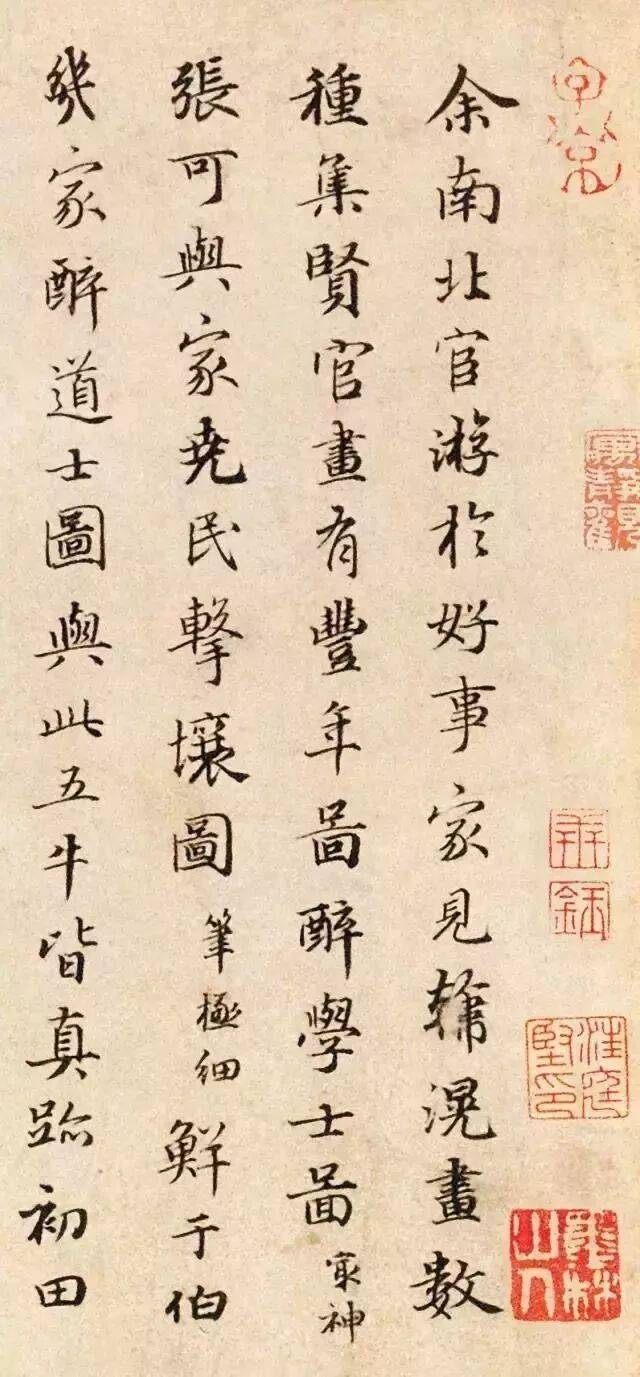 余南北官游於好事家見韓滉畫數
種集賢官畫有豐年啚醉學士啚㝡神
張可與家尭民擊壤圖筆極細鮮于伯
幾家醉道士圖與此五牛皆真跡初田
汪庭
堅印